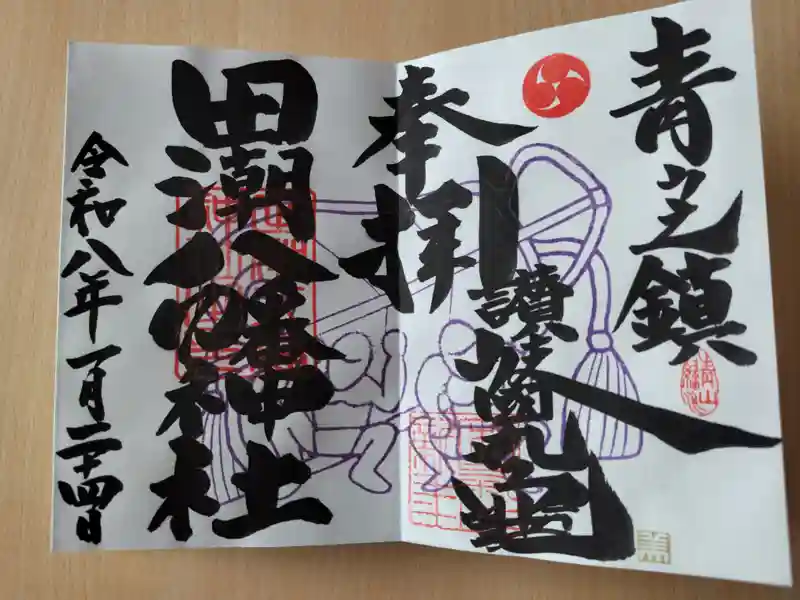 青之鎮
奉拝
讃岐丸亀
田潮八幡神社
令和八年一月二十四日